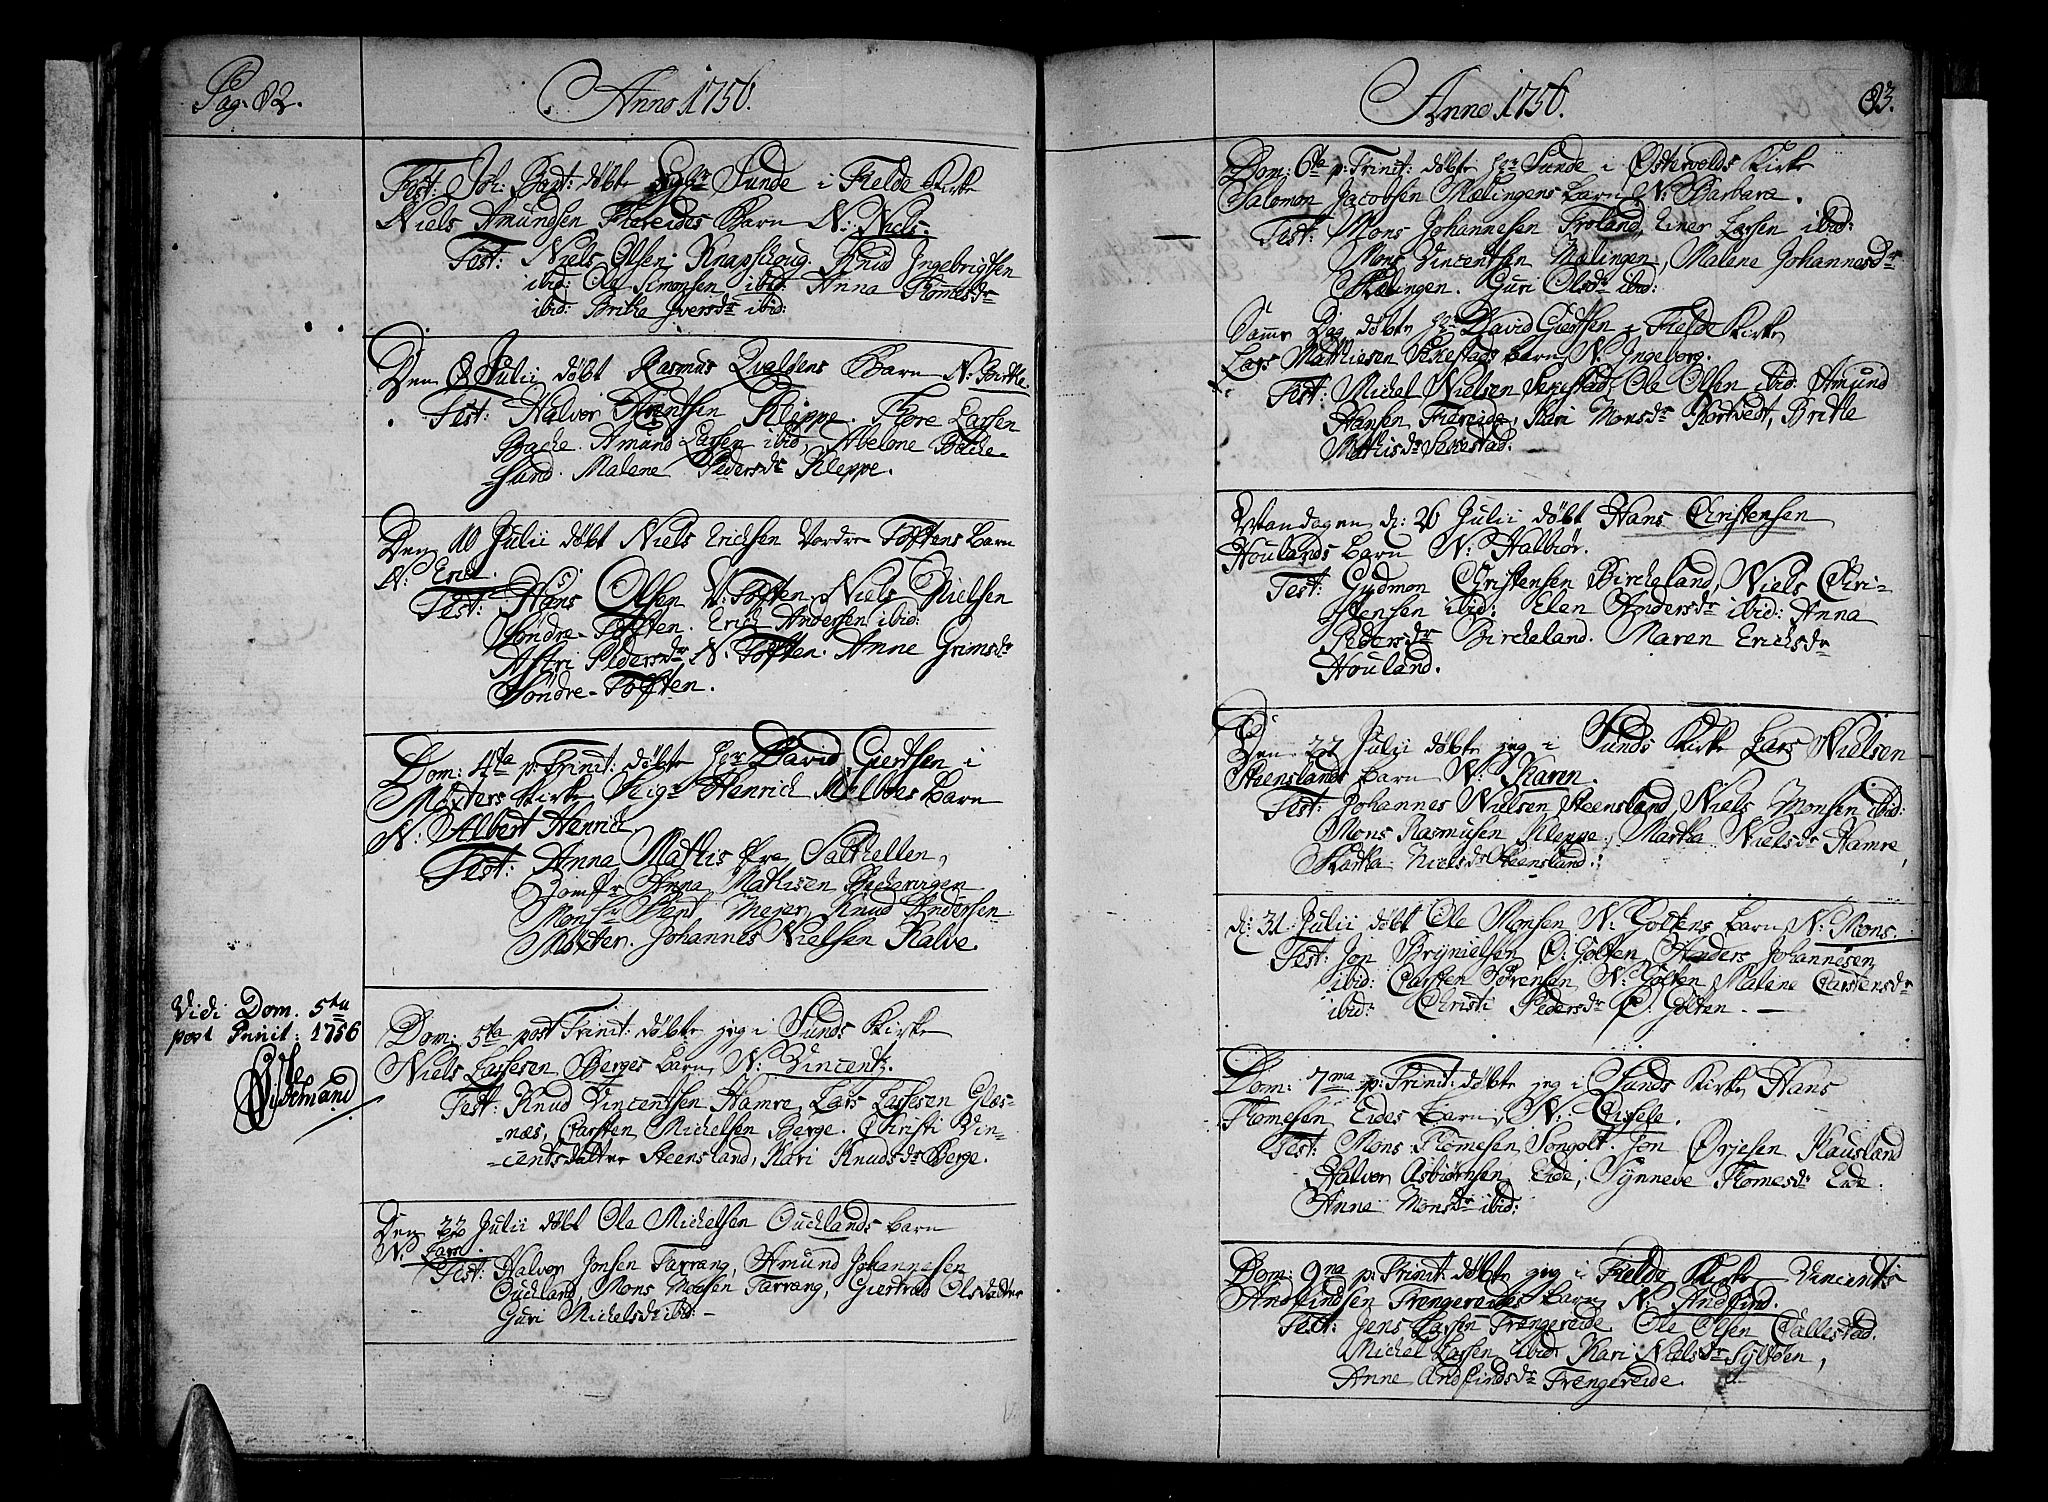 Pag: 82.
Anno 1756.
Fest: Joh: Bapt: døbte Hr Sunde i Fielde Kirke
Niels Amundsen Fiereides Barn N: Niels.
Test: Niels Olsen Knapschoug. Knud Ingebrigtsen
ibid: Ole Simonsen ibid: Anna Thomesdr
ibid: Britha Iversdr ibid:
Den 8 Julii døbt Rasmus Qvalsens Barn N: Birthe
Test: Halvor Arentsen Kleppe. Thore Larsen
Bache. Amund Larsen ibid, Abelone Bache-
-sund. Malene Pedersdr Kleppe.
Den 10 Julii døbt Niels Erichsen Nordre Tofftens Barn
N: Erich.
Test: Hans Olsen N. Tofften, Niels Nielsen
Søndre-Tofften. Erich Andersen ibid:
Astri Pedersdr N. Tofften. Anne Grimsdr
Søndre-Tofften.
Dom: 4ta p: Trinit: døbte Hr David Giertsen i
Møxters Kirke Sigr Henrich Meltzers Barn
N: Albert Henrich
Test: Anna Mathis fra Salthellen,
Jomfr Anna Mathisen Bechervigen
Monsr Bent Mejer, Knud Andersen
Møxter. Johannes Nielsen Kalve.
Vidi Dom. 5ta
post Trinit: 1756
Dom: 5ta post Trinit: døbte jeg i Sunds Kirke
Niels Lassesen Berges barn, N: Vincentz.
Test: Knud Vincentsen Hamre, Lars Lassesen Glæs-
-næs, Carsten Michelsen Berge. Christi Vin-
-centsdatter Steensland, Kari Knudsdr Berge.
Den 22 Julii døbt Ole Michelsen Ouchlands barn
N: Lars.
Test: Halvor Jonsen Tarrang, Amund Johannesen
Ouchland, Mons Monsen Tarrang, Giertrud Olsdatter
Guri Michelsdr ibid. -
Anno 1756.
83.
Dom: 6ta p: Trinit: døbte Hr Sunde i Østervolds Kirke
Salomon Jacobsen Mælingens barn N: Barbara.
Test: Mons Johannesen Froland, Einer Larsen ibid:
Mons Vincentsen Mælingen, Malene Johannesdr
Mælingen. Guri Olsdr ibid:
Samme Dag døbte Hr David Giertsen i Fielde Kirke
Lars Mathiesen Sekestads barn N: Ingeborg.
Test: Michel Nielsen Sekestad, Ole Olsen ibid: Amund
Hansen Fiereide, Kari Monsdr Kortvedt, Brithe
Mathisdr Sekestad.
Mandagen d: 26 Julii døbt Hans Christensen
Houlands barn N: Halbiør.
Test: Gudmon Christensen Bircheland, Niels Chri-
stensen ibid: Elen Andersdr ibid: Anna
Pedersdr Bircheland. Maren Erichsdr
Houland.
Den 27 Julii døbte jeg i Sunds Kirke Lars Nielsen
Steenslands barn N: Karen.
Test: Johannes Nielsen Steensland, Niels Monsen ibid:
Mons Rasmusen Kleppe, Martha Nielsdr Hamre,
Martha Nielsdr Steensland.
d: 31 Julii døbt Ole Monsen N: Goltens barn N: Mons.
Test: Jon Brynielsen Ø: Golten, Anders Johannesen
ibid: Carsten Sørensen N: Golten, Malene Carstensdr
ibid: Christi Pedersdr Ø: Golten. -
Dom: 7ma p: Trinit: døbte jeg i Sunds Kirke, Hans
Thomesen Eides barn, N: Cissele.
Test: Mons Thomesen Songolt. Jon Ørjesen Kausland
Halvor Asbiørnsen Eide, Synneve Thomesdr Eide.
Anne Monsdr ibid:
Dom: 9na p: Trinit: døbte jeg i Fielde Kirke Vincents
Andfindsen Trengereides barn, N: Andfind.
Test: Jens Larsen Trengereide. Ole Olsen Tallestad.
Michel Larsen ibid: Kari Nielsdr Sylten,
Anne Andfindsdr Trengereide.